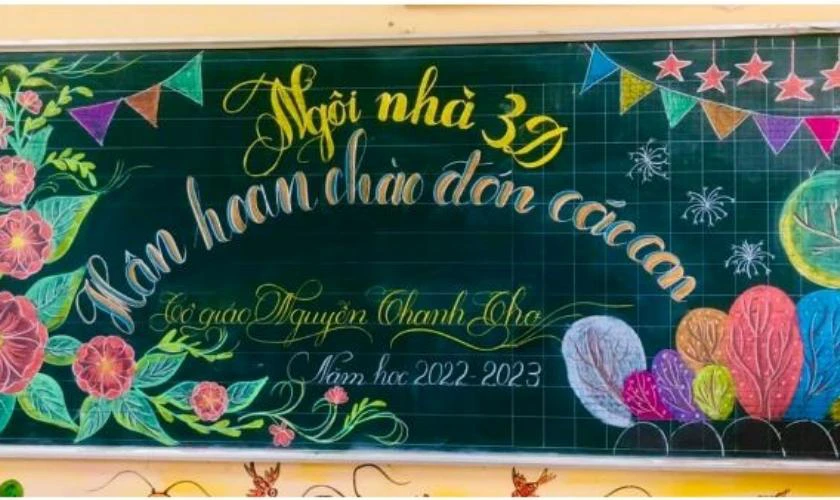 Ngôi nhà 3D
Hân hoan chào đón các con
Cô giáo Nguyễn Thanh Thơ
Năm học 2022-2023